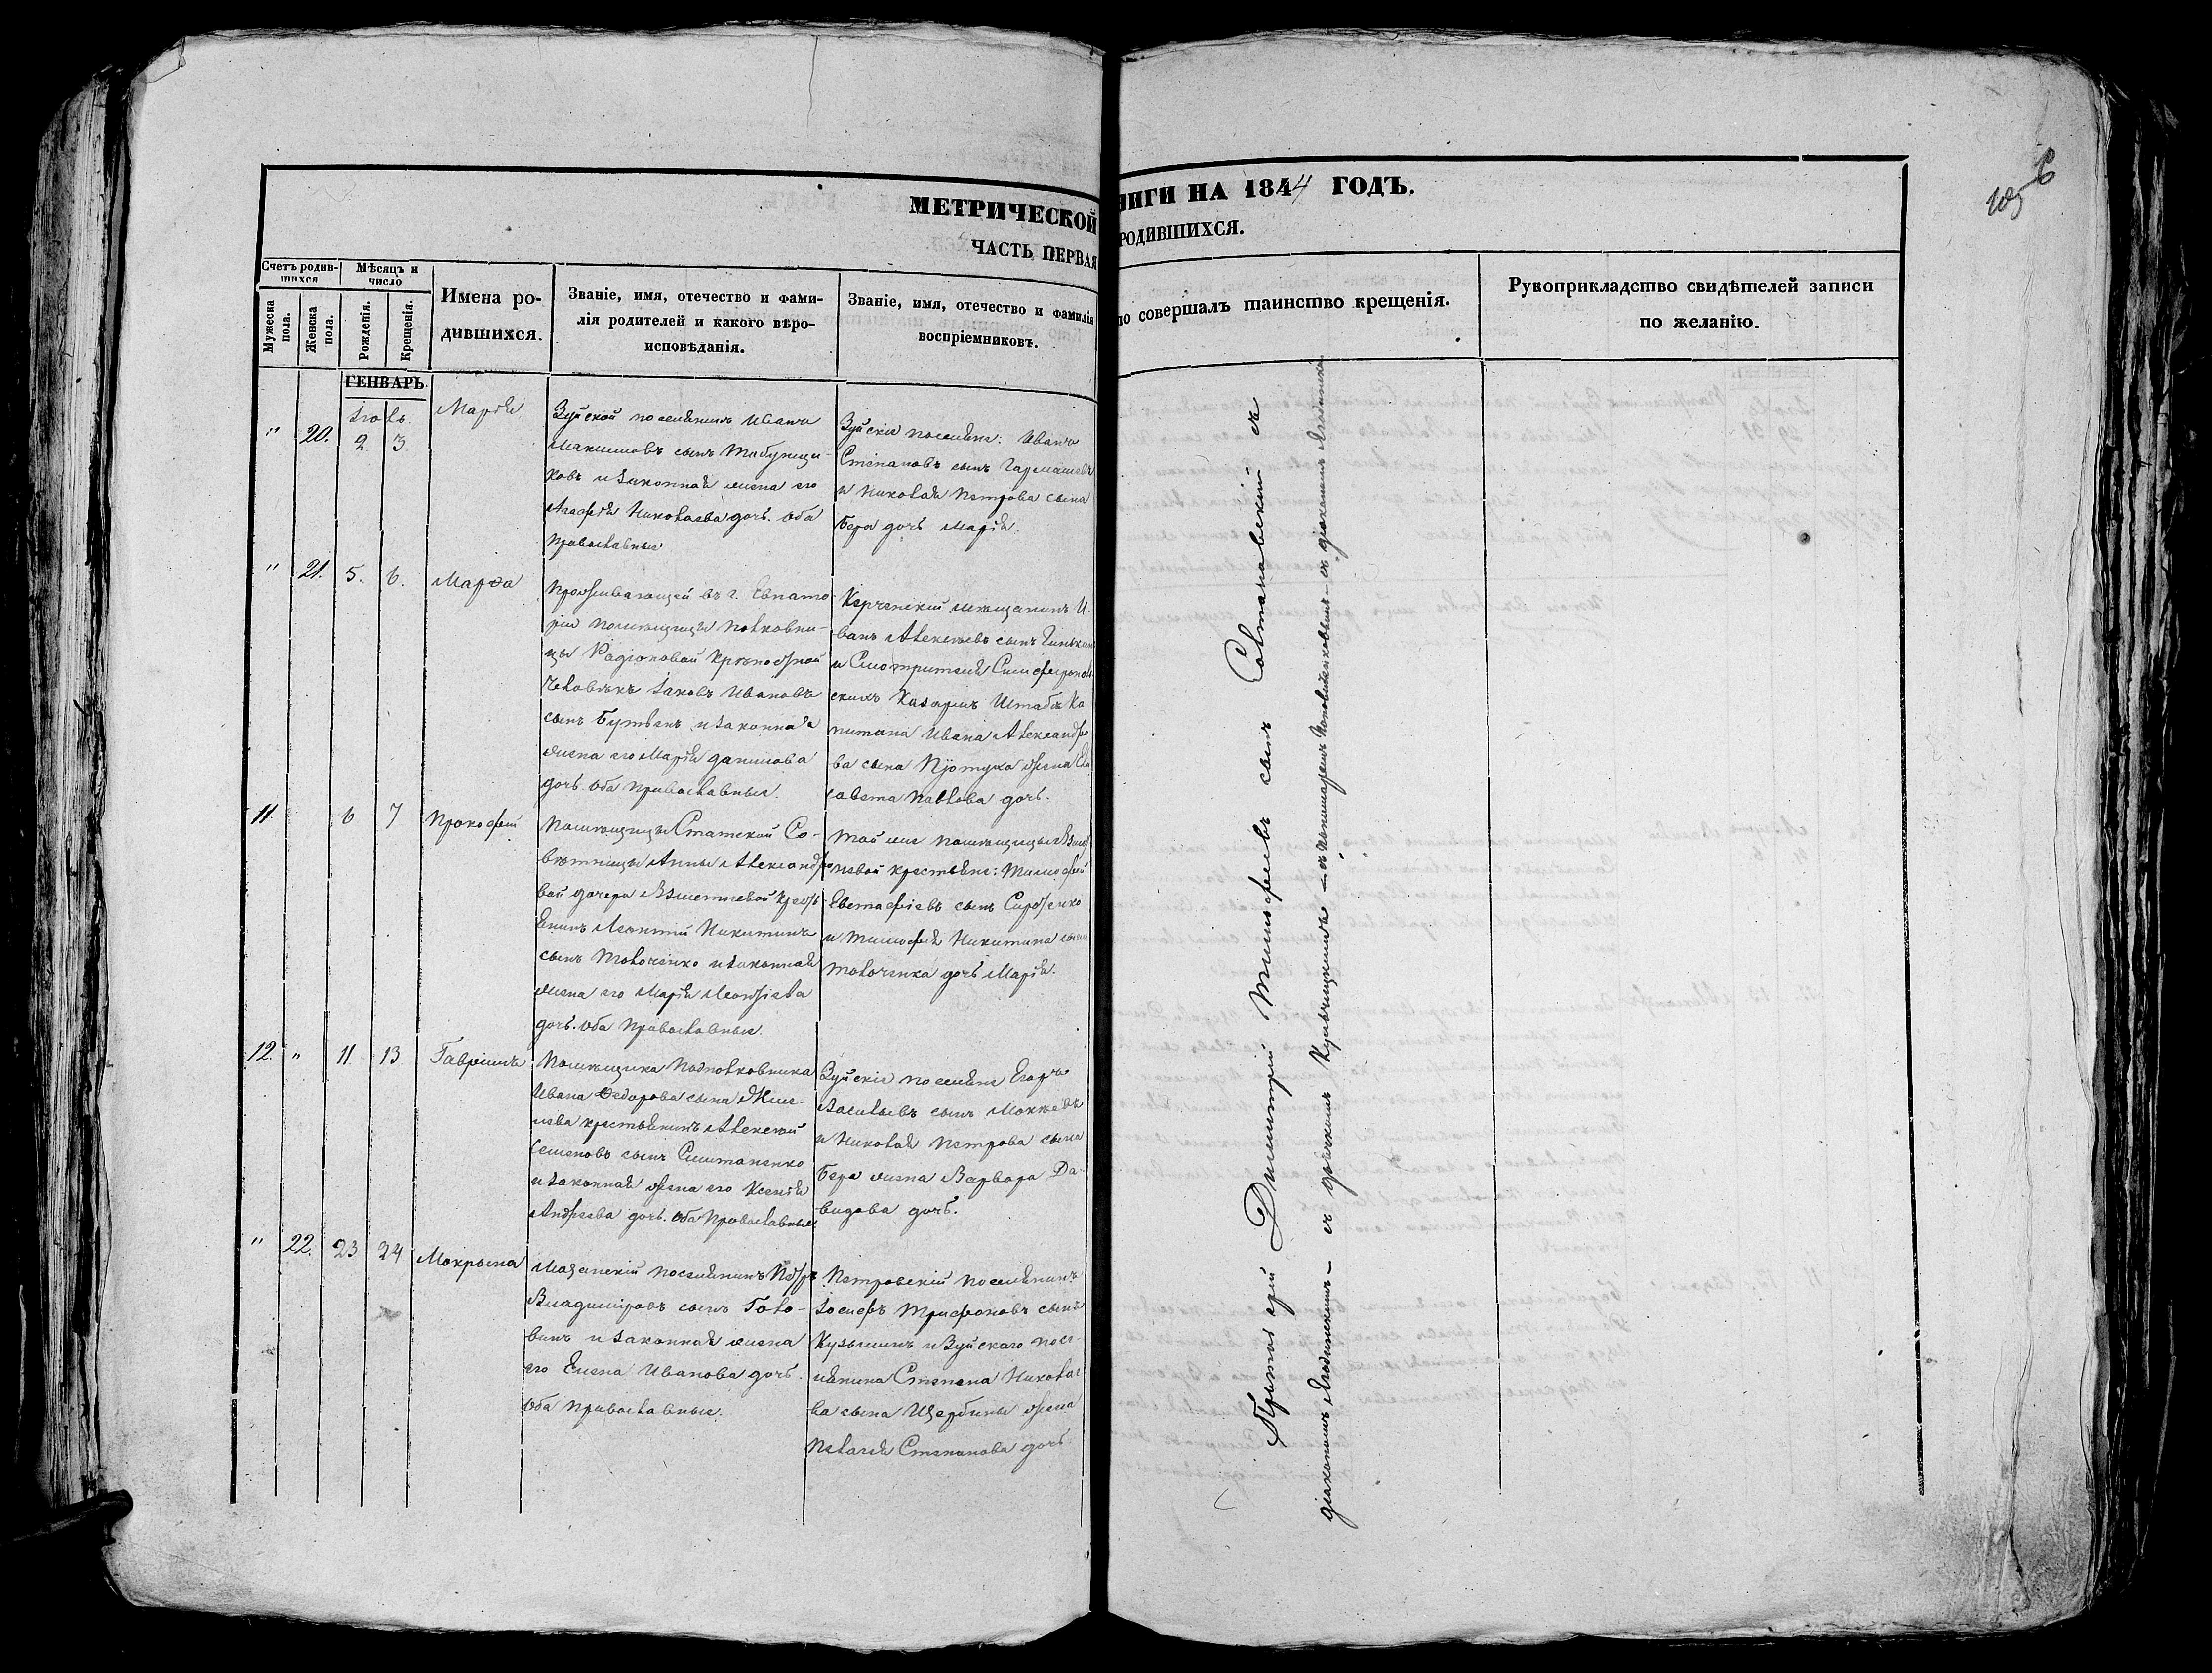 МЕТРИЧЕСКОЙ
НИГИ НА 1844 ГОДЪ.
ЧАСТЬ ПЕРВАЯ
РОДИВШИХСЯ.
Счетъ родив-
шихся
Мѣсяцъ и
число
Мужеска
пола.
Женска
пола.
Рожденія.
Крещенія.
Имена ро-
дившихся.
Званіе, имя, отечество и фами-
лія родителей и какого вѣро-
исповѣданія.
Званіе, имя, отечество и фамилія
воспріемниковъ.
совершалъ таинство крещенія.
Рукоприкладство свидѣтелей записи
по желанію.
ГЕНВАРЬ
" 20. 2 3.
Марія
Зуйской поселянинъ Иванъ
Максимовъ сынъ
и законная жена его
Агафія Николаева дочь. оба
православные
Зуйскіе поселяне: Иванъ
Степановъ сынъ
и Николая Петрова сына
Бера дочь Марія.
" 21. 5. 6. Марфа
Проживающей въ г. Евпато-
ріи помѣщицы полковни-
цы Радіоновой крѣпостной
человѣкъ Іаковъ Ивановъ
сынъ и законная
жена его Марія Данилова
дочь. оба православные.
Керченскій мѣщанинъ И-
ванъ Алексѣевъ сынъ
и Смотрителя Симферополь
скихъ Казармъ Штабъ Ка
питана Ивана Александро
ва сына жена Ели
савета Павлова дочь.
11 6 7 Прокофій
Помѣщицы Статской Со-
вѣтницы Анны Александро
вой дочери
Леонтій Никитинъ
сынъ Толоченко и законная
жена его Марія
дочь. оба православные.
Той же помѣщицы
крестьяне: Тимофей
Евстафіевъ сынъ Сироженко
и Тимофея Никитина сына
Толоченка дочь Марія.
12. " 11 13 Гавріилъ
Помѣщика Подполковника
Ивана Федорова сына
крестьянинъ Алексѣй
Семеновъ сынъ
и законная жена его Ксенія
Андреева дочь. оба православные
Зуйскіе поселяне Егоръ
Васильевъ сынъ
и Николая Петрова сына
Бера жена Варвара Да-
видова дочь.
" 22. 23 24 Макрына
Мазанскій поселянинъ
Владиміровъ сынъ Голо-
винъ и законная жена
его Елена Иванова дочь.
оба православные.
Петровскій поселянинъ
Іосифъ Трифоновъ сынъ
Кузьминъ и Зуйскаго посе-
лянина Степана Никола
ва сына Щербины жена
Пелагея Степанова дочь
Протоіерей Димитрій Тимофеевъ сынъ Солтановскій съ
105
6